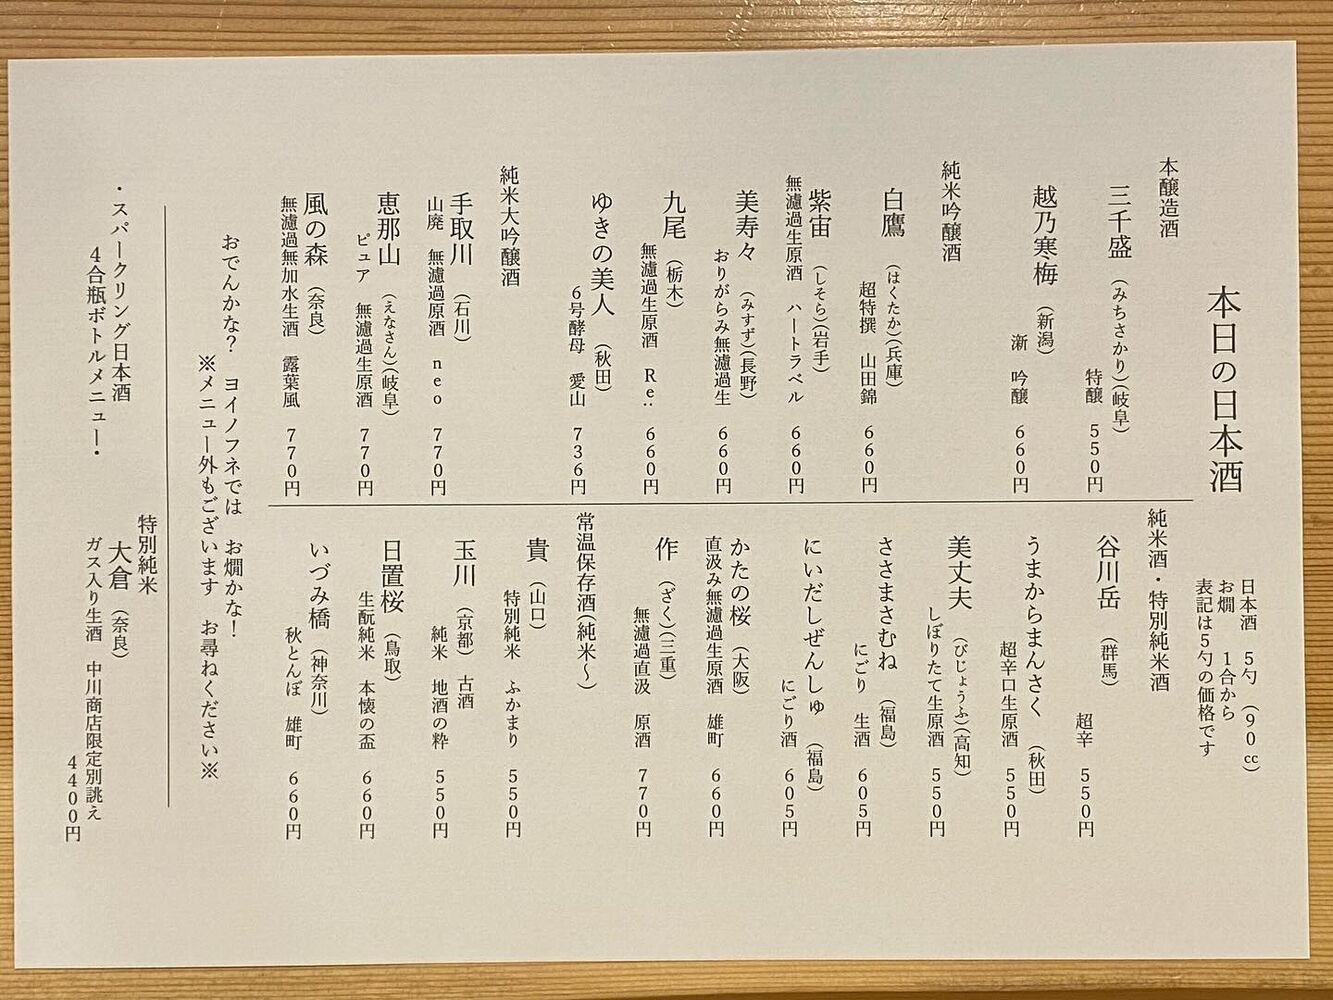 本日の日本酒
日本酒 5勺(90cc)
お燗 1合から
表記は5勺の価格です
本醸造酒
三千盛(みちさかり)(岐阜)
特醸 550円
越乃寒梅(新潟)
漸 吟醸 660円
純米吟醸酒
白鷹(はくたか)(兵庫)
超特撰 山田錦 660円
紫宙(しそら)(岩手)
無濾過生原酒 ハートラベル 660円
美寿々(みすず)(長野)
おりがらみ無濾過生 660円
九尾(栃木)
無濾過生原酒 Re: 660円
ゆきの美人(秋田)
6号酵母 愛山 736円
純米大吟醸酒
手取川(石川)
山廃 無濾過原酒 neo 770円
恵那山(えなさん)(岐阜)
ピュア 無濾過生原酒 770円
風の森(奈良)
無濾過無加水生酒 露葉風 770円
純米酒・特別純米酒
谷川岳(群馬)
超辛 550円
うまからまんさく(秋田)
超辛口生原酒 550円
美丈夫(びじょうふ)(高知)
しぼりたて生原酒 550円
ささまさむね(福島)
にごり 生酒 605円
にいだしぜんしゅ(福島)
にごり酒 605円
かたの桜(大阪)
直汲み無濾過生原酒 雄町 660円
作(ざく)(三重)
無濾過直汲 原酒 770円
常温保存酒(純米〜)
貴(山口)
特別純米 ふかまり 550円
玉川(京都) 古酒
純米 地酒の粋 550円
日置桜(鳥取)
生酛純米 本懐の盃 660円
いづみ橋(神奈川)
秋とんぼ 雄町 660円
おでんかな? ヨイノフネでは お燗かな!
※メニュー外もございます お尋ねください※
・スパークリング日本酒
4合瓶ボトルメニュー・
特別純米
大倉(奈良)
ガス入り生酒 中川商店限定別誂え
4400円